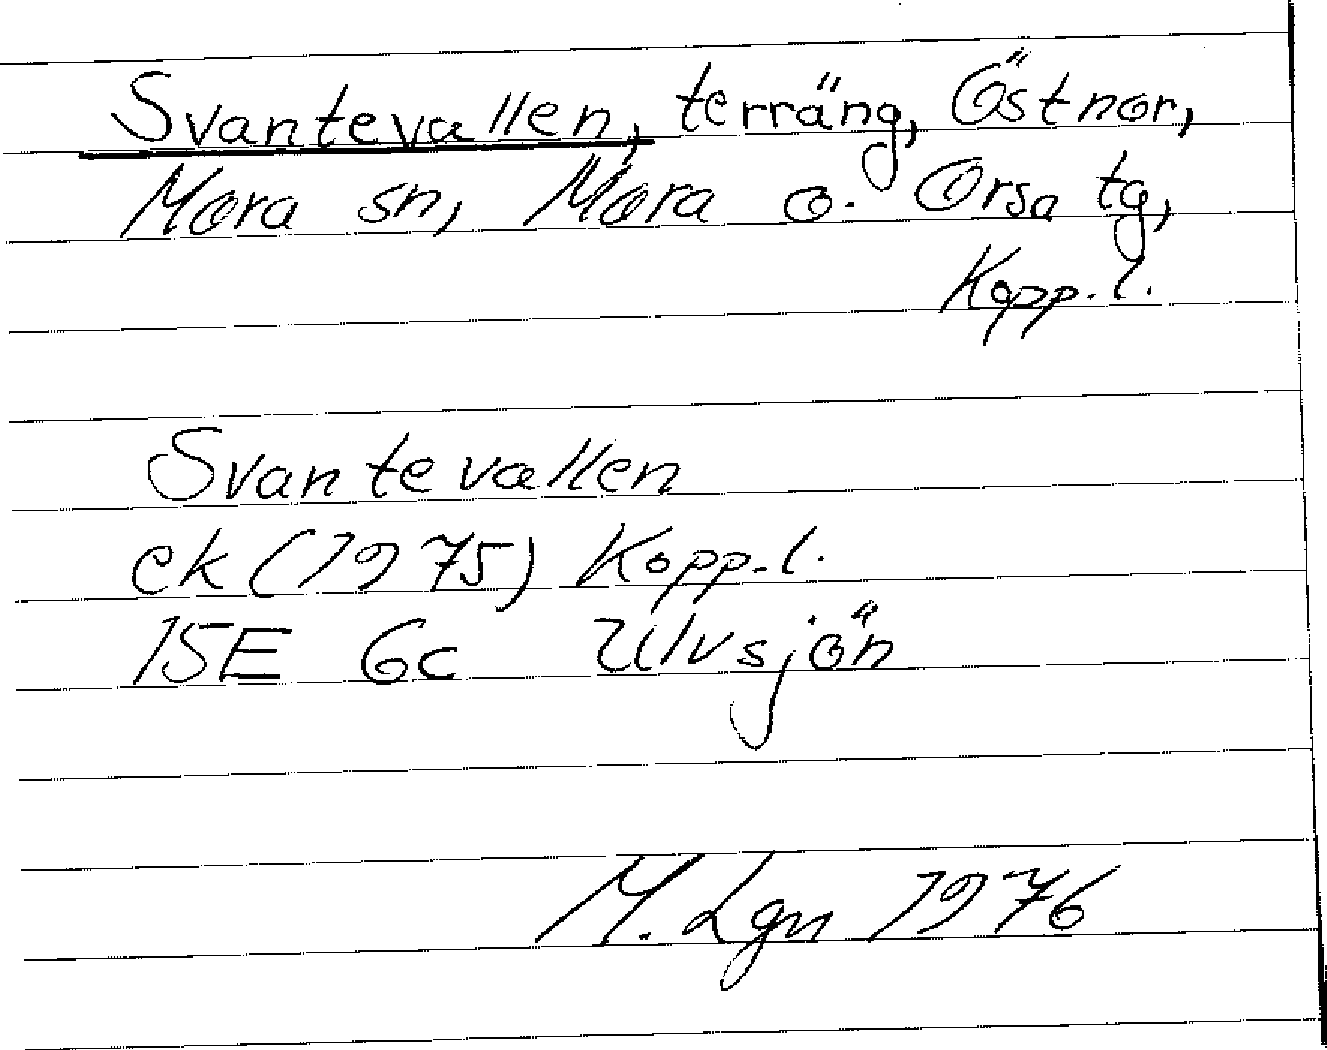 Svantevallen, terräng, Östnor,
Mora sn, Mora o. Orsa tg,
Kopp. l.
Svantevallen
ek (1975) Kopp. l.
15E 6c Ulvsjön
M. Lgn 1976